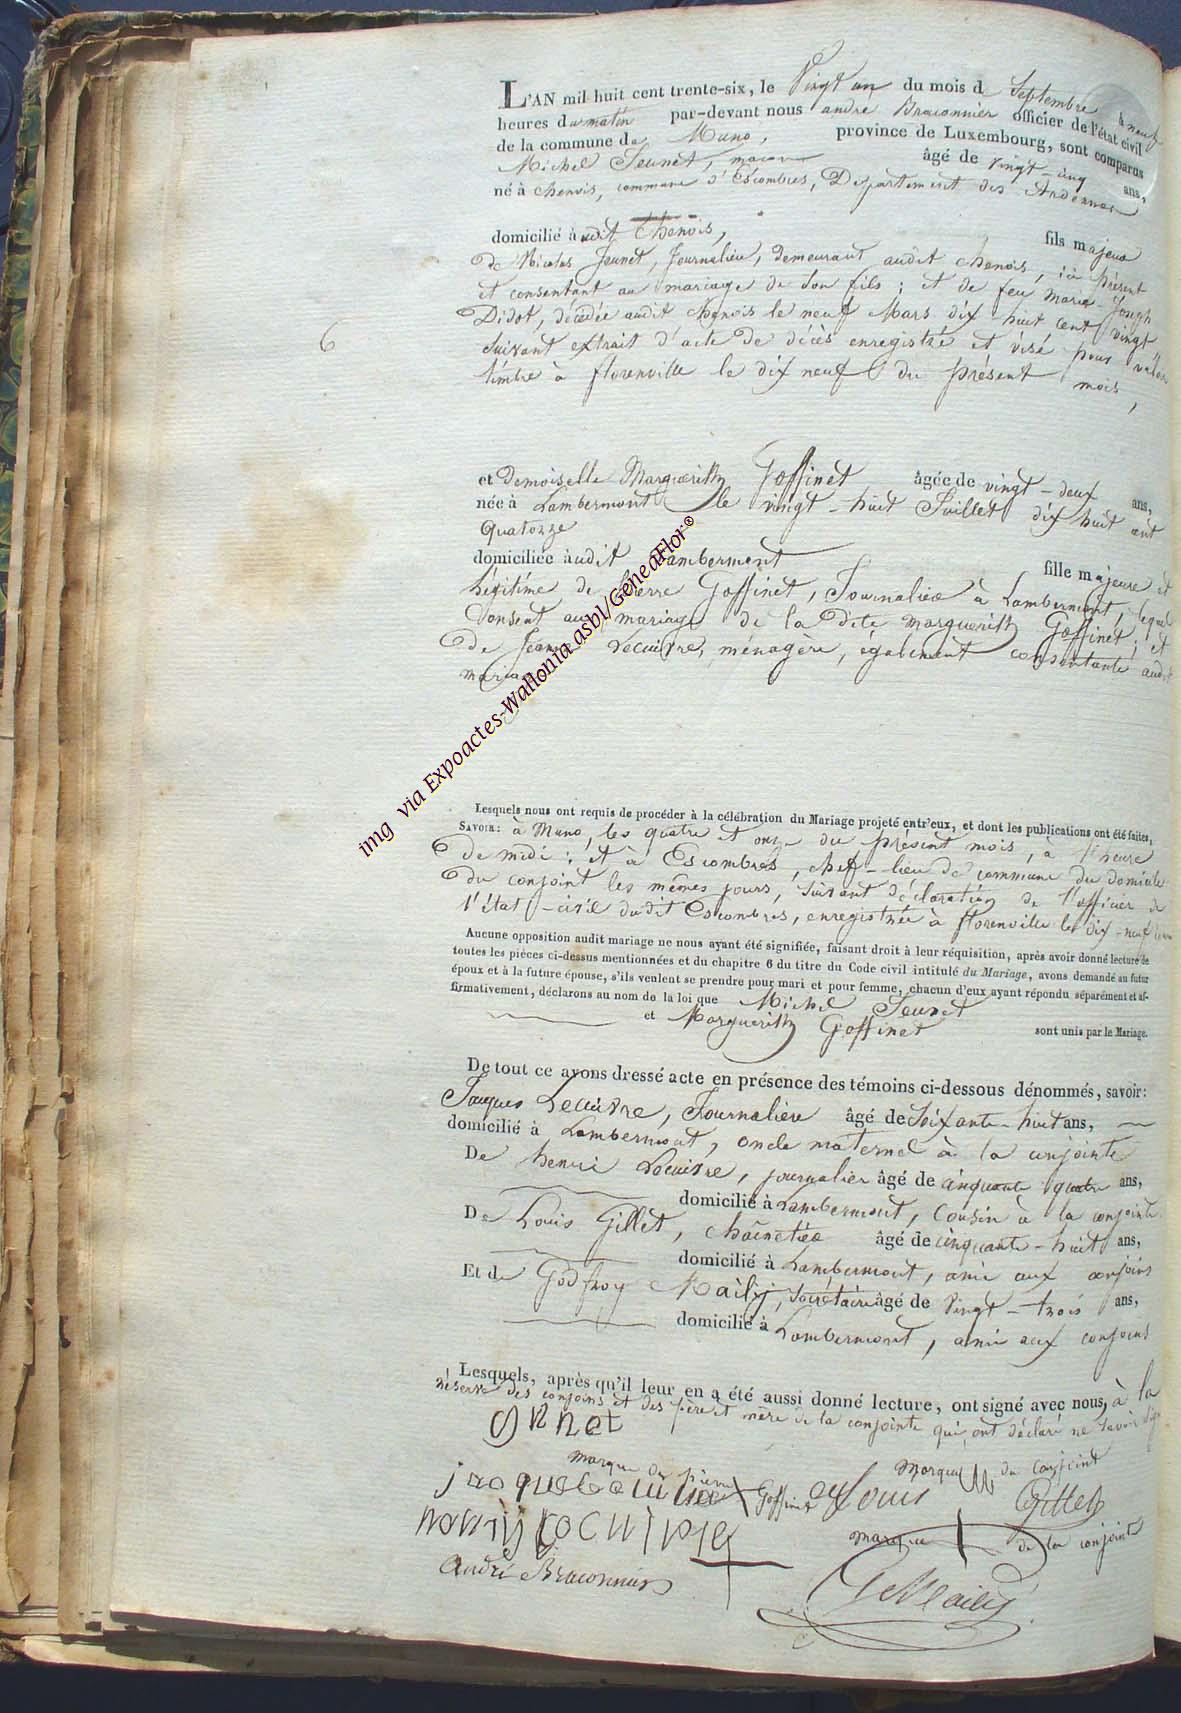 L'AN mil huit cent trente-six, le Vingt un du mois de Septembre à neuf
heures du matin par-devant nous andré Braconnier officier de l'état civil
de la commune de Muno, province de Luxembourg, sont comparus
Michel Jeunet, maçon âgé de vingt-cinq ans,
né à chenois, commune d'Escombres, Département des Ardennes
domicilié audit Chenois, fils majeur
De Nicolas Jeunet, Journalier, demeurant audit chenois, ici présent
et consentant au mariage de son fils ; et de feu Marie-Joseph
Didot, décédée audit chenois le neuf Mars dix huit cent vingt
suivant extrait d'acte de décès enregistré et visé pour valoir
6
timbre à florenville le dix neuf du présent mois,
et Demoiselle Margueritte Goffinet âgée de vingt-deux ans,
née à Lambermont le vingt-huit Juillet dix huit cent
quatorze
domiciliée audit Lambermont fille majeure et
Légitime de Pierre Goffinet, Journalier à Lambermont, lequel
Consent au mariage de la dite Margueritte Goffinet ; et
De Jeanne Lecuivre, ménagère, également consentante audit
mariage
img via Expoactes-Wallonia asbl/GeneaFlor®
Lesquels nous ont requis de procéder à la célébration du Mariage projeté entr'eux, et dont les publications ont été faites,
SAVOIR : à Muno, les quatre et onze du présent mois, à l'heure
De midi ; et à Escombres, chef-lieu de commune du domicile
du conjoint les mêmes jours, suivant déclaration de l'officier de
l'état-civil dudit Escombres, enregistrée à florenville le dix-neuf
Aucune opposition audit mariage ne nous ayant été signifiée, faisant droit à leur réquisition, après avoir donné lecture de
toutes les pièces ci-dessus mentionnées et du chapitre 6 du titre du Code civil intitulé du Mariage, avons demandé au futur
époux et à la future épouse, s'ils veulent se prendre pour mari et pour femme, chacun d'eux ayant répondu séparément et af-
firmativement, déclarons au nom de la loi que Michel Jeunet
et Margueritte Goffinet sont unis par le Mariage.
De tout ce avons dressé acte en présence des témoins ci-dessous dénommés, savoir :
Jacques Lecuivre, Journalière âgé de Soixante-huit ans,
domicilié à Lambermont, oncle maternel à la conjointe
De henri Lecuivre, journalier âgé de cinquante quatre ans,
domicilié à Lambermont, Cousin à la conjointe.
De Louis Gillet, châinetier âgé de cinquante-huit ans,
domicilié à Lambermont, ami aux conjoins
Et de Godfroy Mailij, secrétaire âgé de Vingt-trois ans,
domicilié à Lambermont, ami aux conjoins
Lesquels, après qu'il leur en a été aussi donné lecture, ont signé avec nous, à la
réserve des conjoins et des père et mère de la conjointe qui ont déclaré ne savoir signer
marque du pierre Goffinet
marque du conjoint
Louis Gillet
marque de la conjointe
André Braconnier
G Mailij